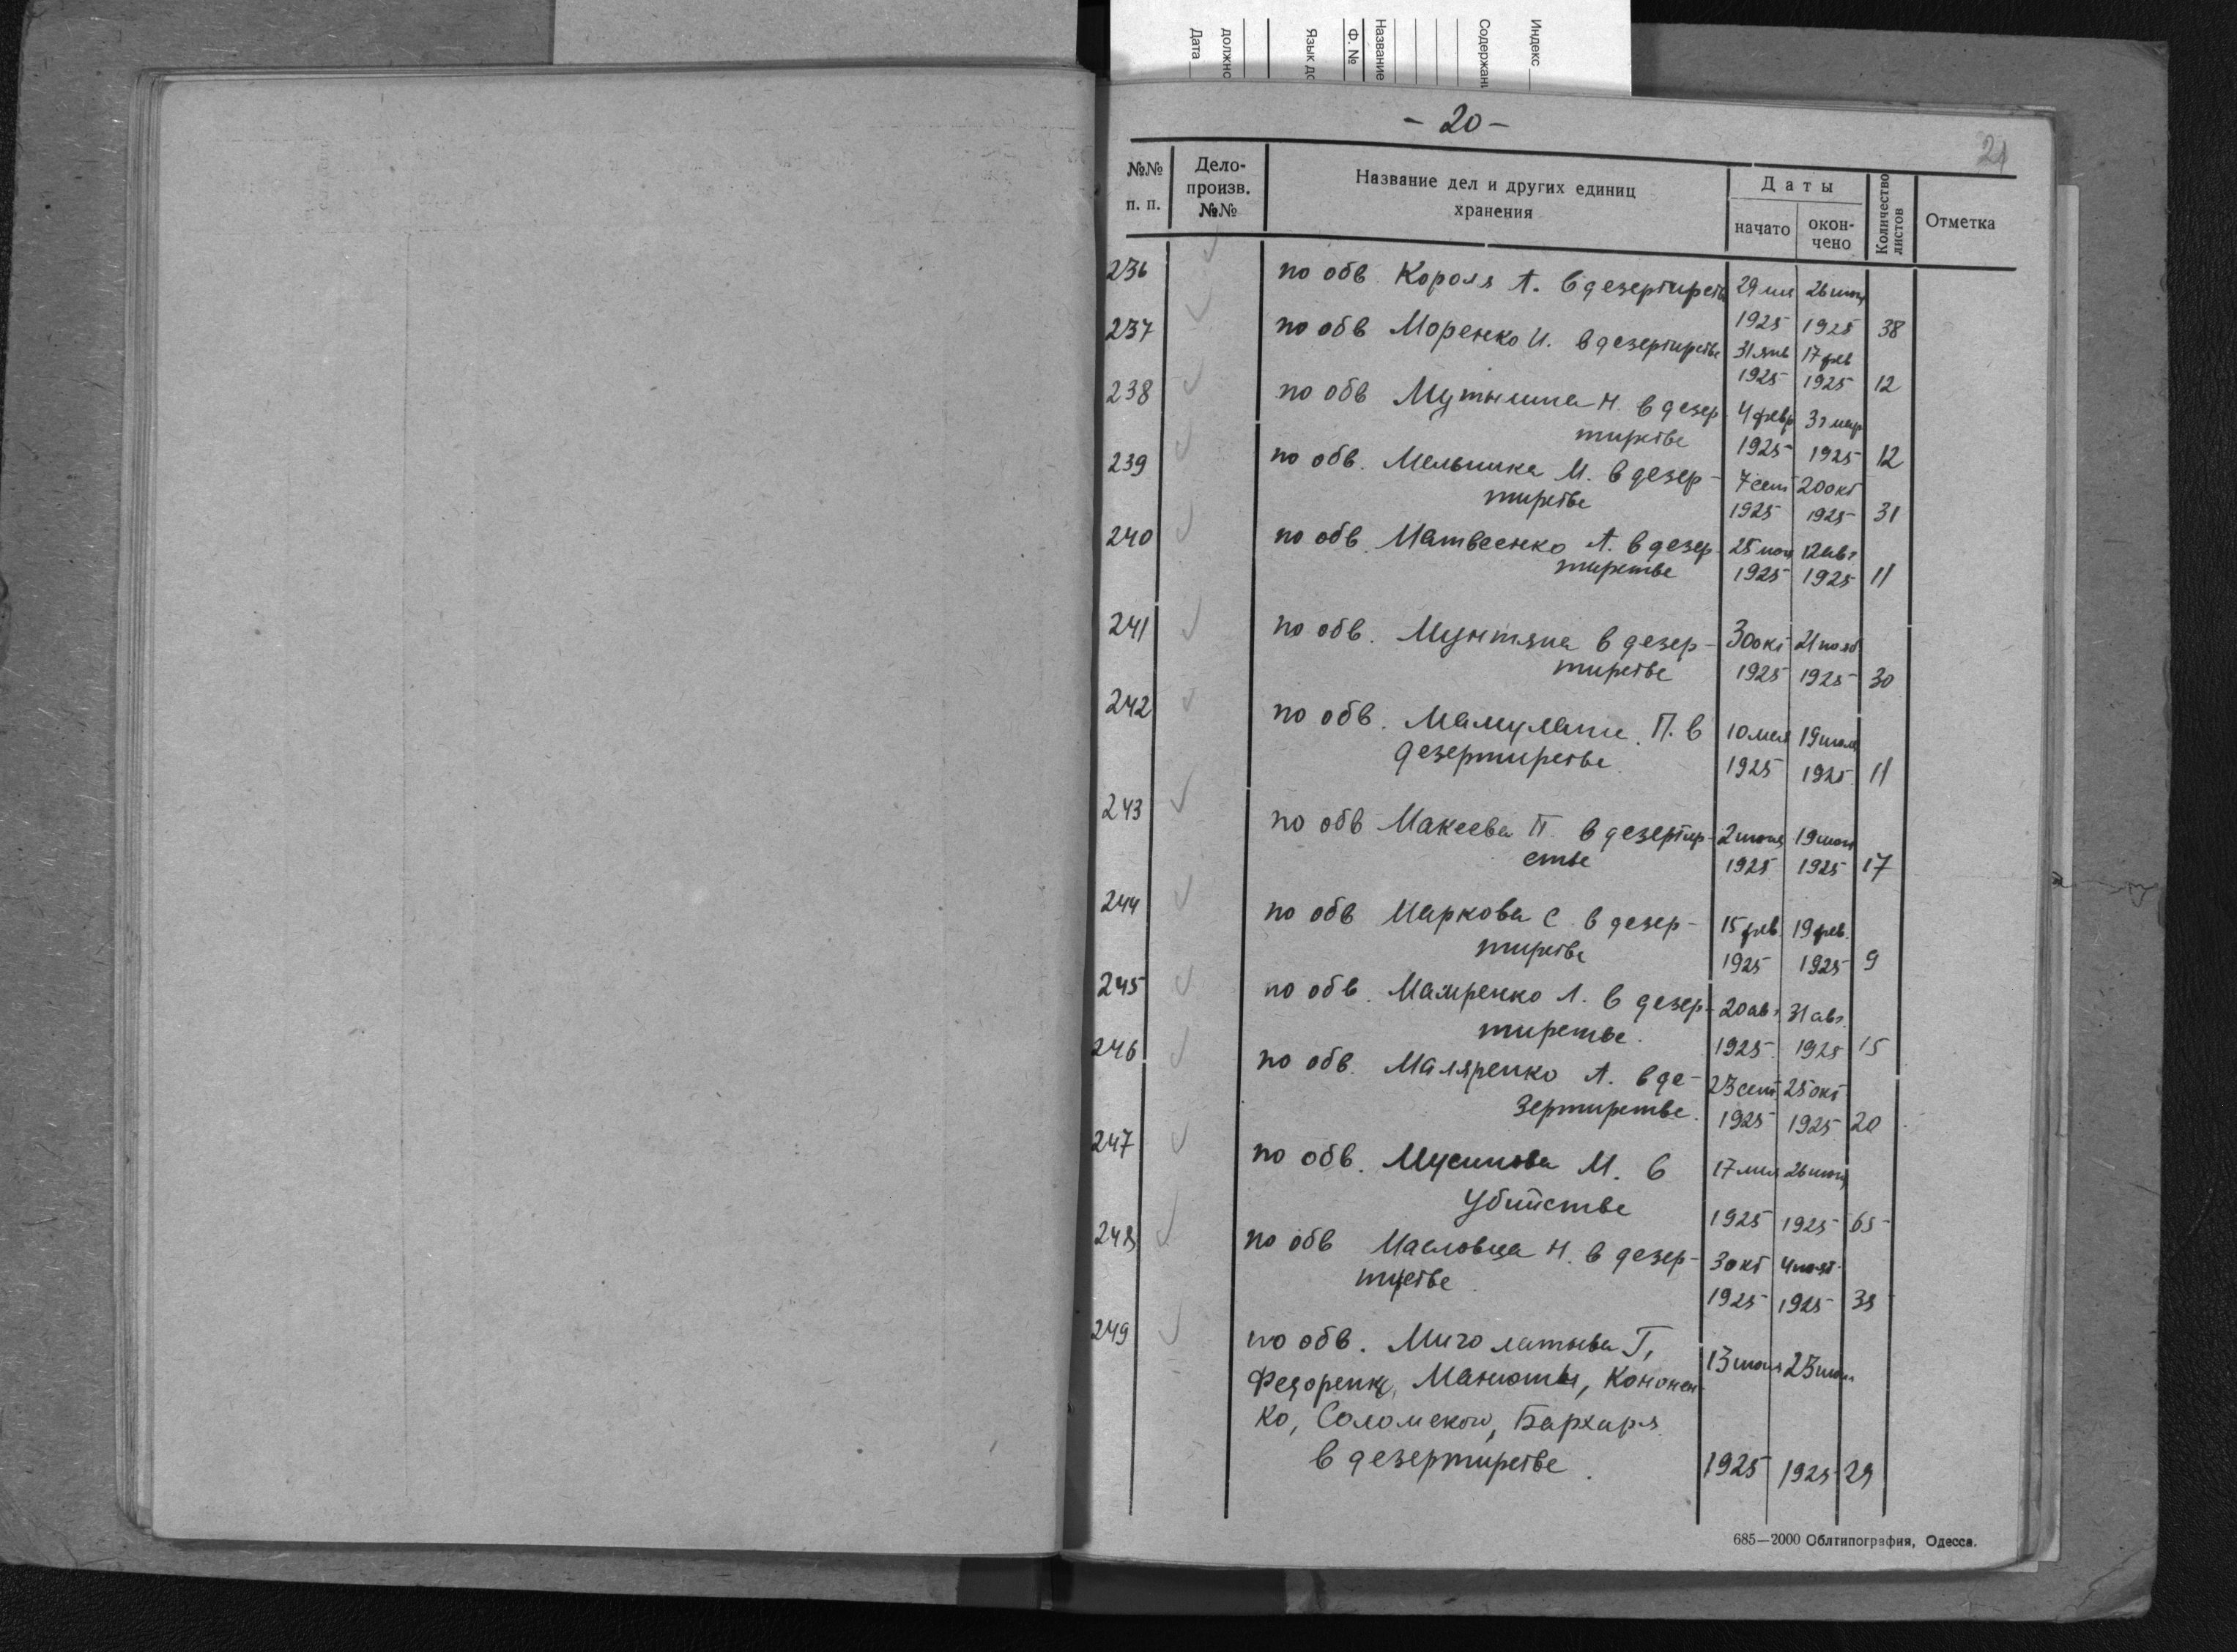 Индекс
Содержан
Название
Ф. №
Язык до
должно
Дата
- 20 -
21
№№ п. п.
Дело-
произв.
№№
Название дел и других единиц
хранения
Даты
начато
окон-
чено
Количество
листов
Отметка
236 по обв Короля А. в дезертирстве 29 мая 26 июня
1925 1925 38
237 по обв Моренко И. в дезертирстве 31 янв 17 фев
1925 1925 12
238 по обв Н. в дезер 4 февр 31 мар
тирстве 1925 1925 12
239 по обв. Мельника М. в дезер- 7 сент 20 окт
тирстве 1925 1925 31
240 по обв. Матвеенко А. в дезер- 25 12 авг
тирстве 1925 1925 11
241 по обв. Мунтяна в дезер- 30 окт 21 нояб
тирстве 1925 1925 30
242 по обв. П. в 10 мая 19 июля
дезертирстве 1925 1925 11
243 по обв Макеева П. в дезертир- 2 июня 19
стве 1925 1925 17
244 по обв Маркова С. в дезер- 15 фев. 19 фев.
тирстве 1925 1925 9
245 по обв. Л. в дезер- 20 авг 31 авг.
тирстве. 1925 1925 15
246 по обв. Маляренко А. в де- 23 сент 25 окт
зертирстве. 1925 1925 20
247 по обв. Мусинова М. в 17 мая 26 июня
убийстве 1925 1925 65
248 по обв Масловца Н. в дезер- 3 окт 4 нояб
1925 1925 35
249 по обв. Т,
Федоренко, Манюты, Кононен- 13 23
ко, Соломского, Бархаря
в дезертирстве. 1925 1925 29
685—2000 Облтипография, Одесса.